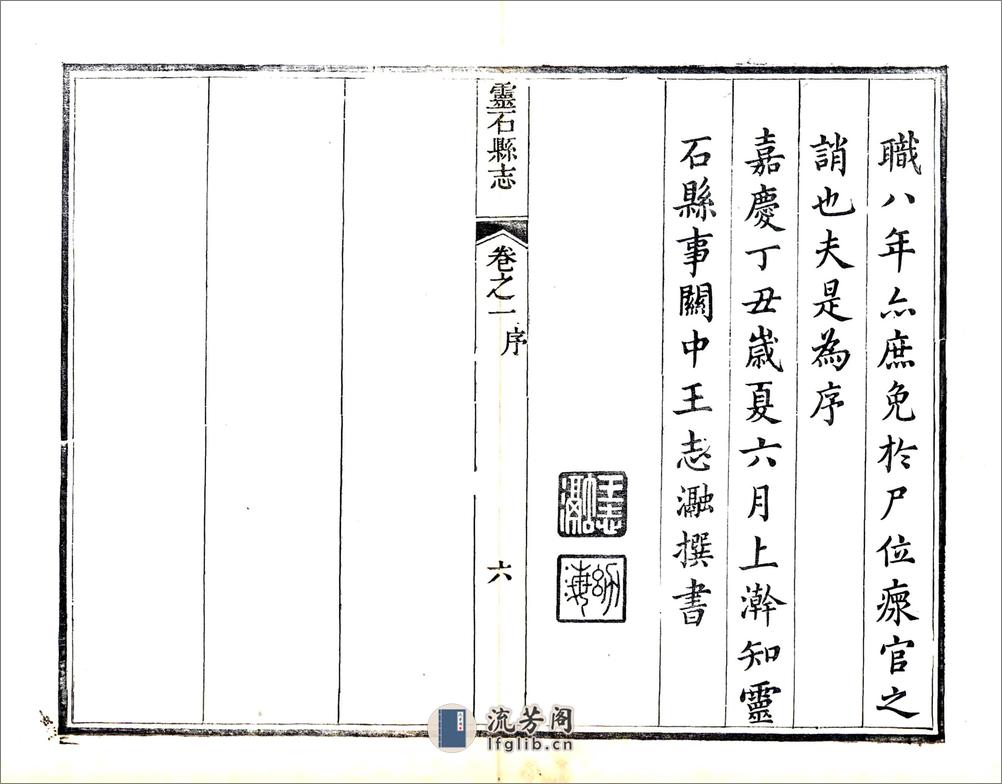 職八年亦庶免於尸位瘝官之
誚也夫是為序
嘉慶丁丑嵗夏六月上澣知靈
石縣事關中王志瀜撰書
王志瀜
幼海
靈石縣志
卷之一
序
六
流芳阁
lfglib.cn